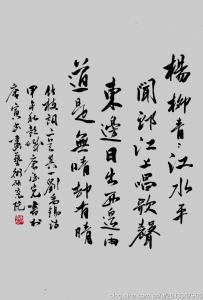 楊柳青〻江水平
聞郎江上唱歌聲
東邊日出西邊雨
道是無晴却有晴
竹枝詞二首其一劉禹錫詩
甲午秋
唐寅書畫藝術研究院